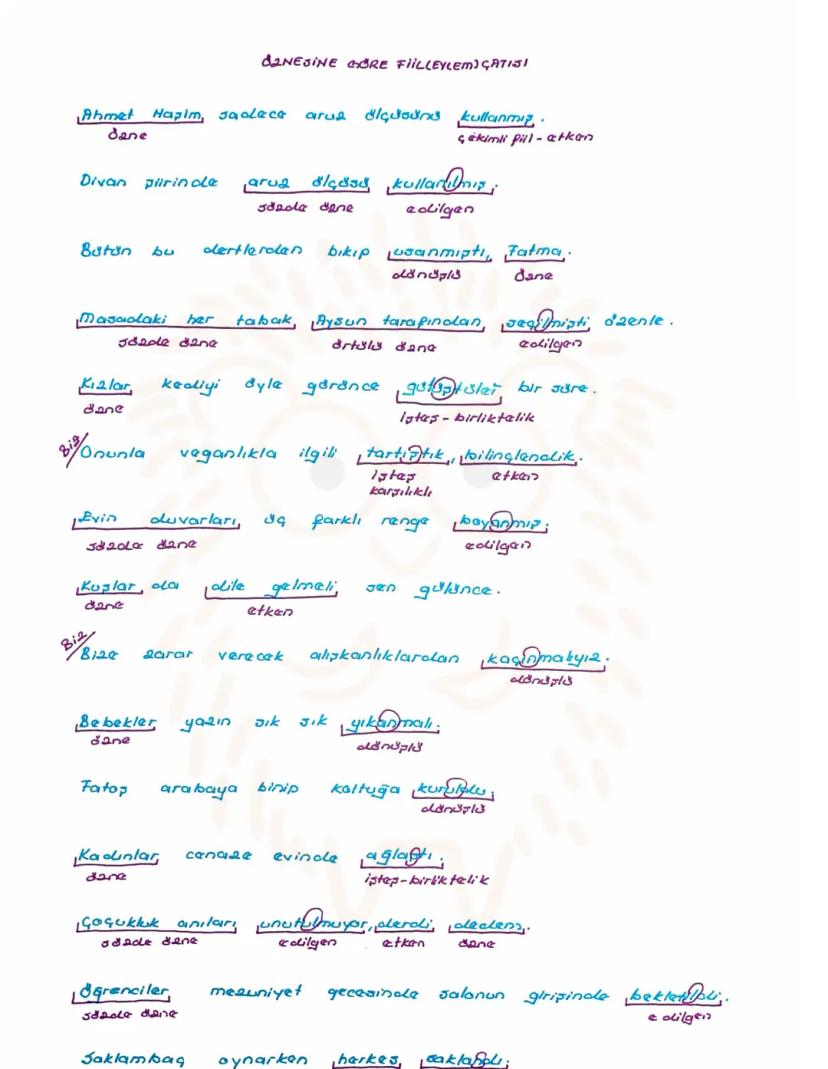 ÖZNESİNE GÖRE FİİL(EYLEM) ÇATISI
Ahmet Haşim, sadece aruz ölçüsünü kullanmış.
özne çekimli fiil - etken
Divan şiirinde aruz ölçüsü kullanılmış.
sözde özne edilgen
Bütün bu dertlerden bıkıp usanmıştı, Fatma.
dönüşlü özne
Masadaki her tabak, Aysun tarafından, seçilmişti özenle.
sözde özne örtülü özne edilgen
Kızlar, kediyi öyle görünce gülüştüler bir süre.
özne işteş - birliktelik
Biz/
Onunla veganlıkla ilgili tartıştık, bilinçlendik.
işteş etken
karşılıklı
Evin duvarları, üç farklı renge boyanmış.
sözde özne edilgen
Kuşlar, da dile gelmeli, sen gülünce.
özne etken
Biz/
Bize zarar verecek alışkanlıklardan kaçınmalıyız.
dönüşlü
Bebekler yazın sık sık yıkanmalı.
özne dönüşlü
Fatoş arabaya binip koltuğa kuruldu.
dönüşlü
Kadınlar, cenaze evinde ağlaştı.
özne işteş-birliktelik
Çoçukluk anıları, unutulmuyor, derdi, dedem.
sözde özne edilgen etken özne
Öğrenciler, mezuniyet gecesinde salonun girişinde bekletildi.
sözde özne edilgen
Saklambaç oynarken herkes, saklandı.